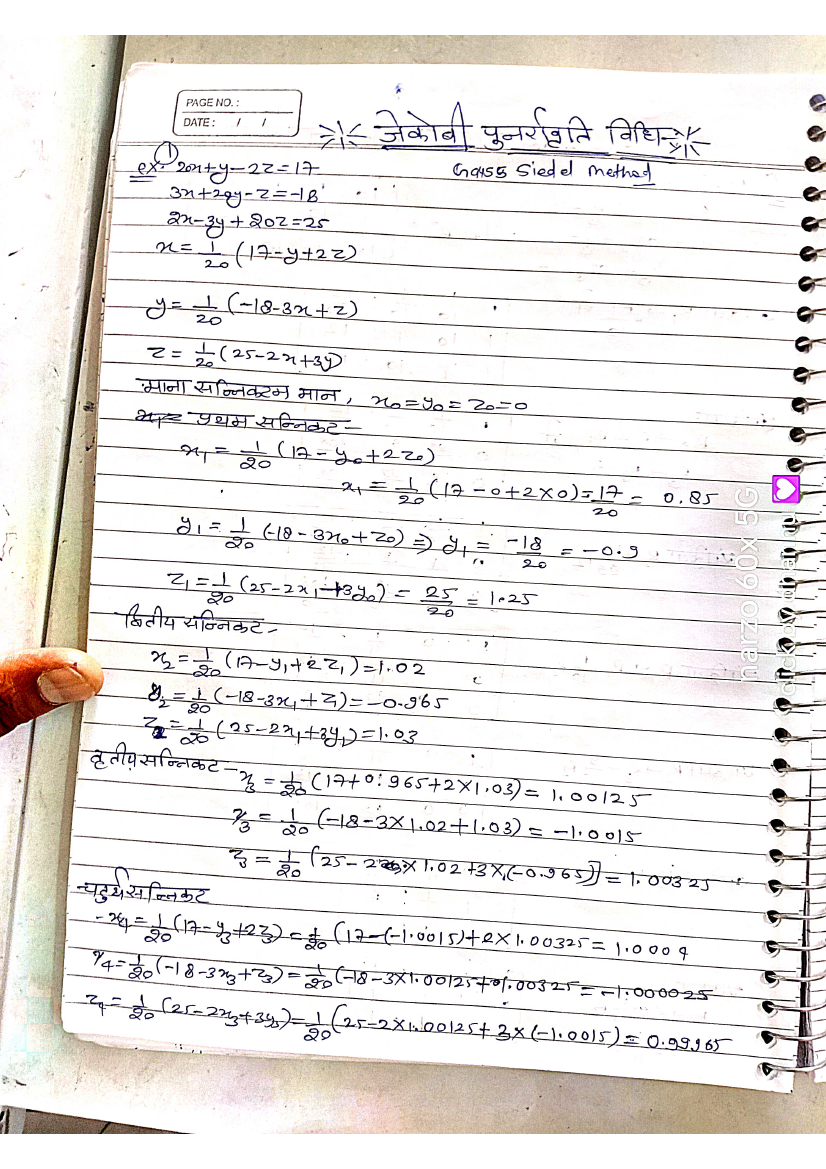 PAGE NO. :
DATE : / /
जेकोबी पुनरावृति विधि
Gauss Siedel Method
ex. ① 20x+y-2z=17
3x+20y-z=-18
2x-3y+20z=25
x = 1/20 (17-y+2z)
y = 1/20 (-18-3x+z)
z = 1/20 (25-2x+3y)
माना सन्निकटम मान, x₀=y₀=z₀=0
प्रथम सन्निकट-
x₁ = 1/20 (17-y₀+2z₀)
x₁ = 1/20 (17-0+2×0) = 17/20 = 0.85
y₁ = 1/20 (-18-3x₀+z₀) ⇒ y₁ = -18/20 = -0.9
z₁ = 1/20 (25-2x₁+3y₀) = 25/20 = 1.25
द्वितीय सन्निकट-
x₂ = 1/20 (17-y₁+2z₁) = 1.02
y₂ = 1/20 (-18-3x₁+z₁) = -0.965
z₂ = 1/20 (25-2x₁+3y₁) = 1.03
तृतीय सन्निकट-
x₃ = 1/20 (17+0.965+2×1.03) = 1.00125
y₃ = 1/20 (-18-3×1.02+1.03) = -1.0015
z₃ = 1/20 [25-2×1.02+3×(-0.965)] = 1.00325
चतुर्थ सन्निकट
-x₄ = 1/20 (17-y₃+2z₃) = 1/20 (17-(-1.0015)+2×1.00325 = 1.0004
y₄ = 1/20 (-18-3x₃+z₃) = 1/20 (-18-3×1.00125+1.00325 = -1.000025
z₄ = 1/20 (25-2x₃+3y₃) = 1/20 (25-2×1.00125+3×(-1.0015) = 0.99965
narzo 60x 5G